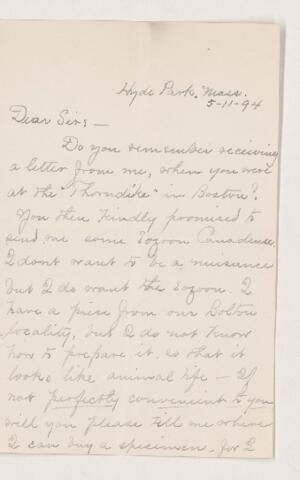 Hyde Park, Mass.
5-11-94
Dear Sir; —
Do you remember receiving
a letter from me, when you were
at the "Thorndike" in Boston?
You then kindly promised to
send me some Eozoon Canadense.
I dont want to be a nuisance
but I do want the Eozoon. I
have a piece from our Bolton
locality, but I do not know
how to prepare it, so that it
looks like animal life — If
not perfectly convenient to you
will you please tell me where
I can buy a specimen, for I